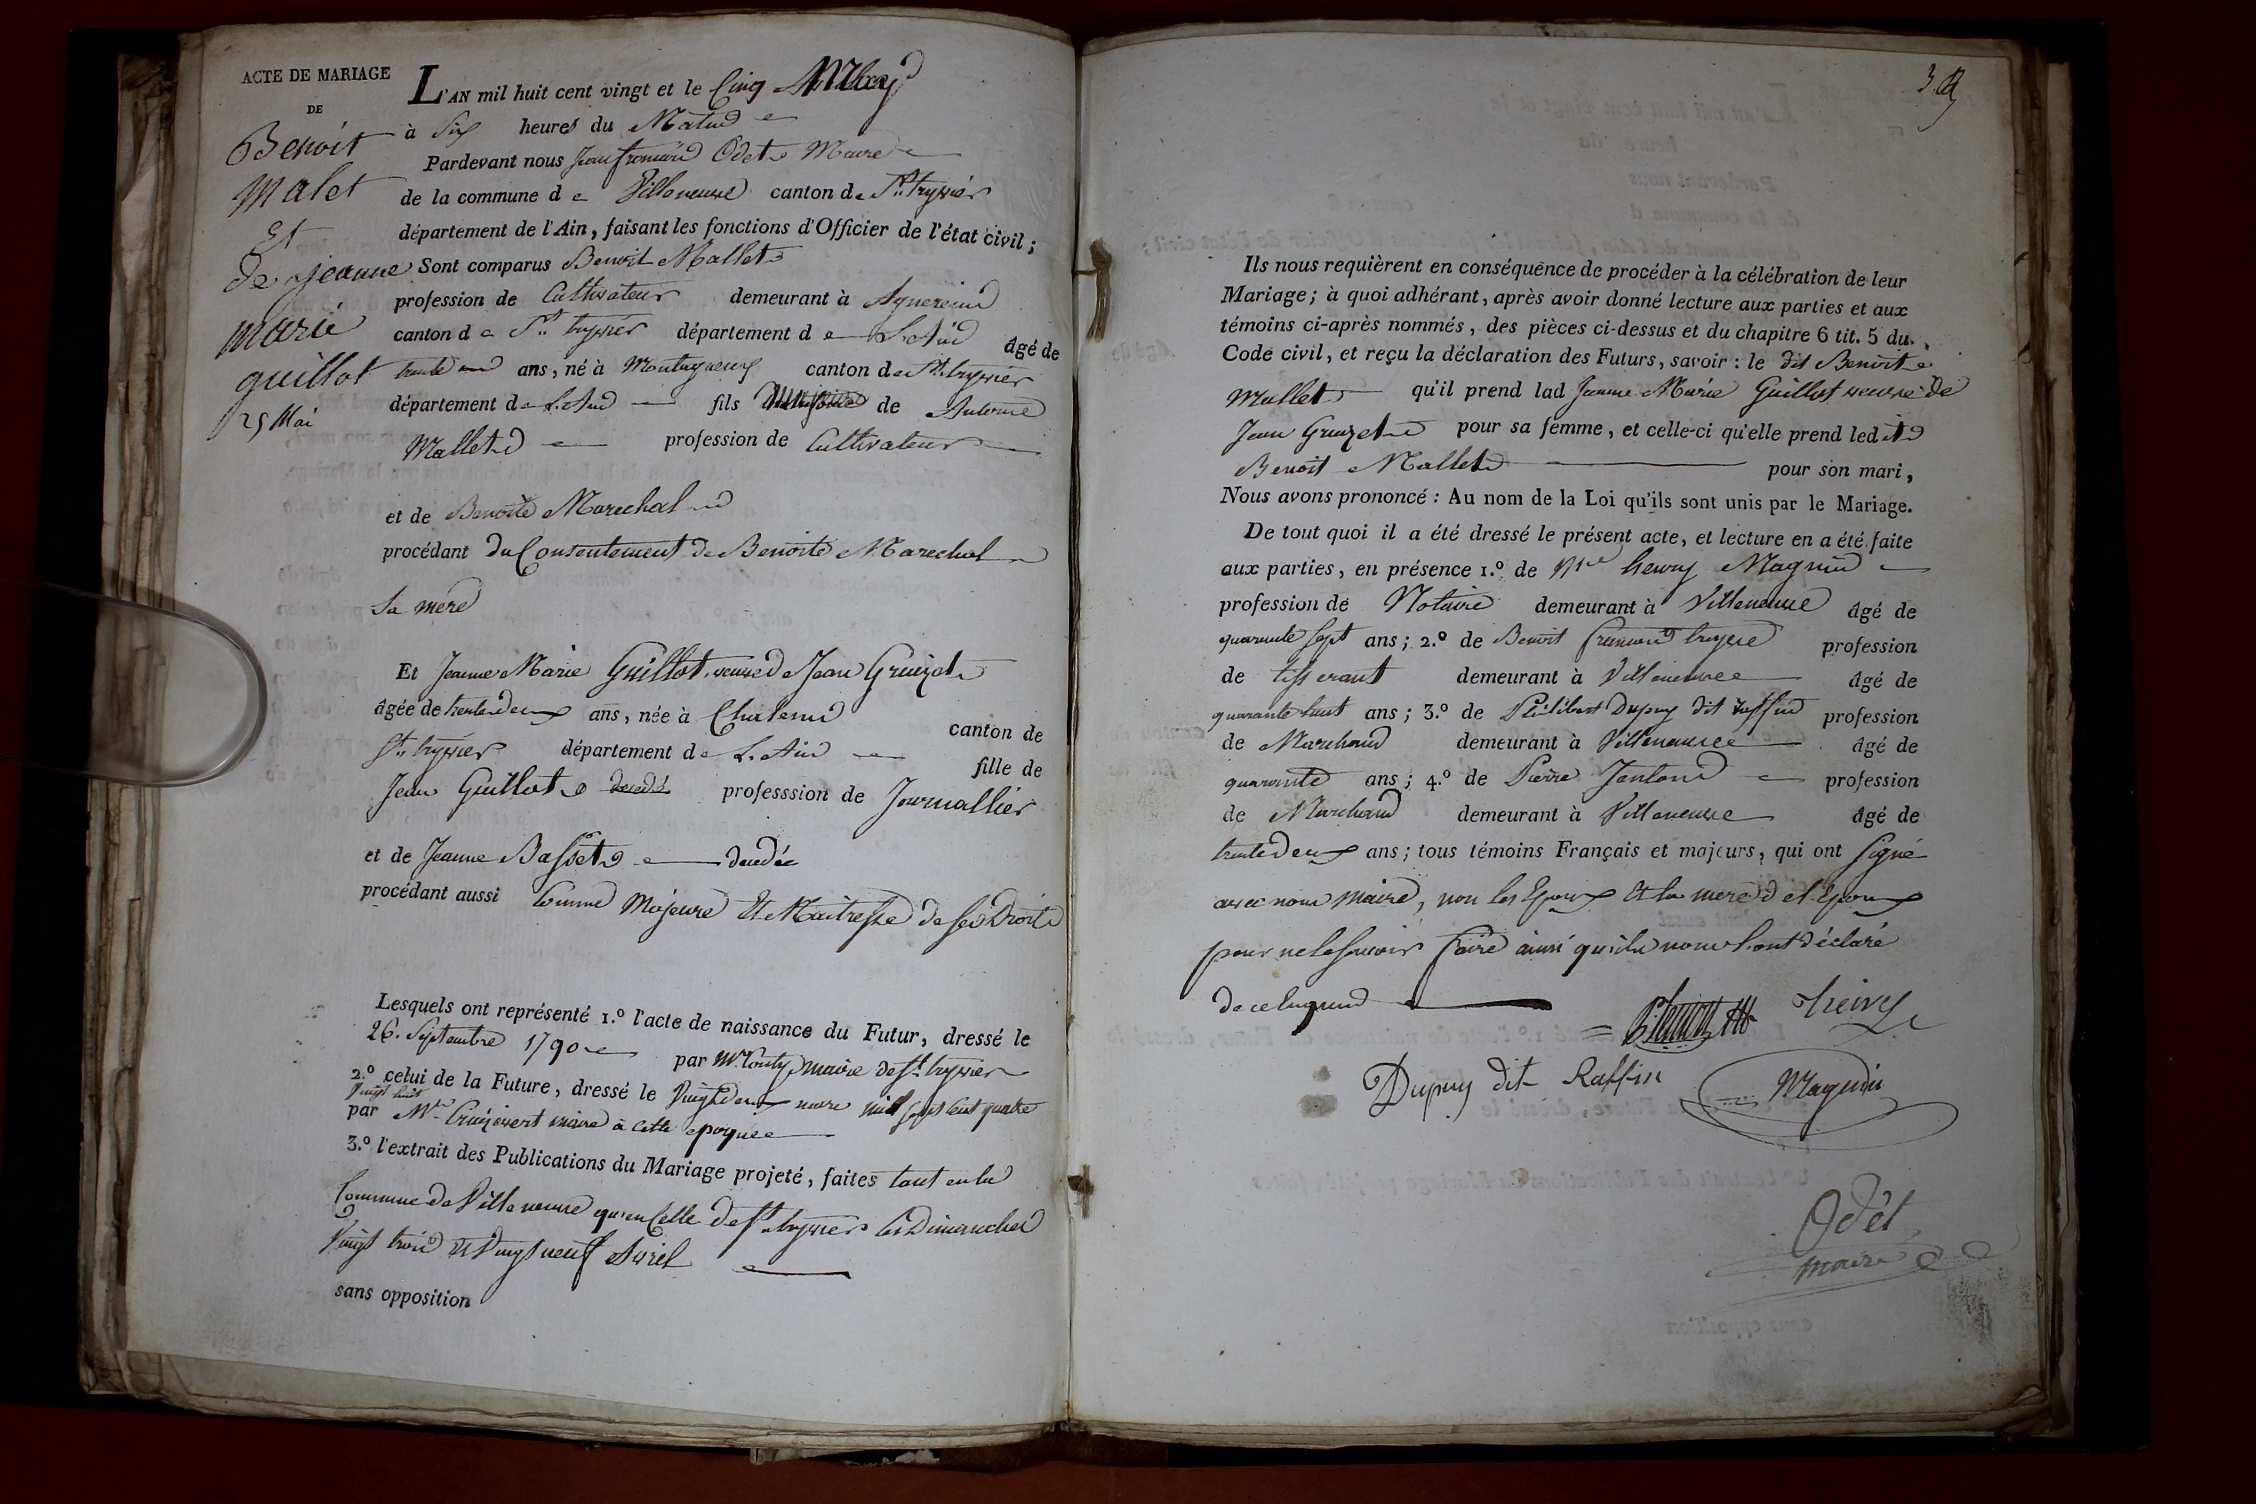 ACTE DE MARIAGE
DE
Benoit
Malet
Et
de jeanne
marie
guillot
25 Mai
L'AN mil huit cent vingt et le Cinq May
à Six heures du Matin
Pardevant nous Jean Odet Maire
de la commune de Villeneuve canton de St. tryvier
département de l'Ain, faisant les fonctions d'Officier de l'état civil;
Sont comparus Benoit Mallet
profession de Cultivateur demeurant à
canton de St. tryvier département de L'Ain âgé de
trente ans, né à canton de St. tryvier
département de L'Ain fils de Antoine
Mallet profession de Cultivateur
et de Benoite Marechal
procédant du Consentement de Benoite Marechal
Sa mere
Et Jeanne Marie Guillot veuve de Jean Gruizet
âgée de trente deux ans, née à canton de
St. tryvier département de L'Ain fille de
Jean Guillot décédé professsion de Journallier
et de Jeanne Basset décédée
procédant aussi Comme Majeure Et Maitresse de ses Droits
Lesquels ont représenté 1.º l'acte de naissance du Futur, dressé le
26. Septembre 1790 par Mr. maire de St. tryvier
2.º celui de la Future, dressé le Vingt deux mars mil sept cent quatre
Vingt huit
par Mr. maire à cette epoque
3.º l'extrait des Publications du Mariage projeté, faites tant en la
Commune de Villeneuve qu'en Celle de St. tryvier les Dimanches
Vingt trois et Vingt neuf Avril
sans opposition
Ils nous requièrent en conséquence de procéder à la célébration de leur
Mariage; à quoi adhérant, après avoir donné lecture aux parties et aux
témoins ci-après nommés, des pièces ci-dessus et du chapitre 6 tit. 5 du
Code civil, et reçu la déclaration des Futurs, savoir: le dit Benoit
Mallet qu'il prend lad Jeanne Marie Guillot veuve De
Jean Gruizet pour sa femme, et celle-ci qu'elle prend ledit
Benoit Mallet pour son mari,
Nous avons prononcé: Au nom de la Loi qu'ils sont unis par le Mariage.
De tout quoi il a été dressé le présent acte, et lecture en a été faite
aux parties, en présence 1.º de henry Magnin
profession de Notaire demeurant à Villeneuve âgé de
quarante Sept ans; 2.º de Benoit profession
de tisserant demeurant à Villeneuve âgé de
quarante huit ans; 3.º de Philibert Dupuy dit raffin profession
de Marchand demeurant à Villeneuve âgé de
quarante ans; 4.º de Pierre profession
de Marchand demeurant à Villeneuve âgé de
trente deux ans; tous témoins Français et majeurs, qui ont Signé
avec nous Maire, non les Epoux Et la mere de l'Epoux
pour ne le Savoir faire ainsi qu'ils nous l'ont déclaré
de ce enquis
Dupuy dit Raffin
Magnin
Odêt
maire